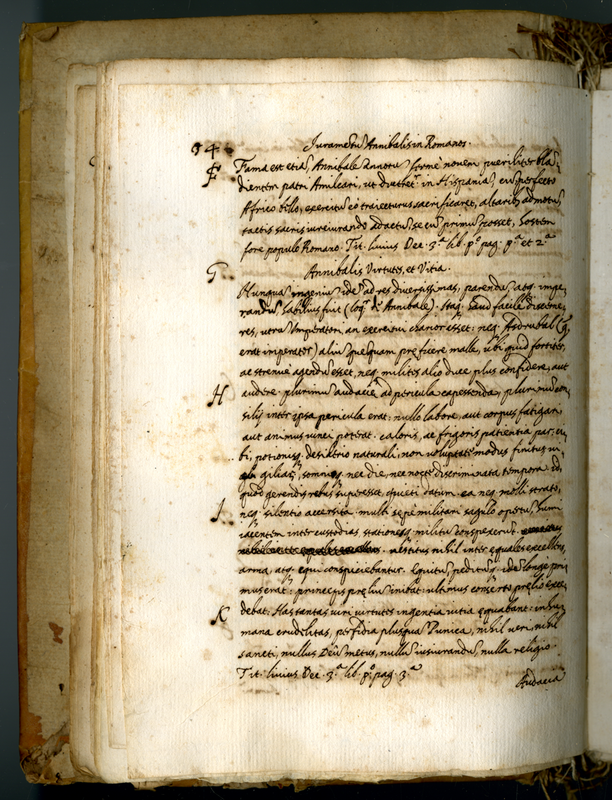 94
Iuramētū Annibalis in Romanos.
F Fama est etiā, Annibalē annorū fermè nouem, pueriliter blā¬
dientem patri Amilcari, ut ducēret' in Hispaniā, cū perfecto
Africo bello, exercitū eò traiecturus sacrificaret, altaribꝯ admotū,
tactis sacris iureiurando adactū, se cū primū posset, hostem
fore populo Romano. Tit. liuius Dec. 3.ª lib. pº. pag. pª. et 2.ª
G Annibalis Virtutes, et Vitia.
Nunquā ingeniū idē ad res diuersissimas, parendū atq. impe¬
randū, habilius fuit (loqr̄ de Annibale). Itaq. haud facile discerne¬
res, utrū Imperatori, an exercitui charior esset: neq. Asdrubal (q.
erat imperator) aliū quēquam pręficere malle, ubi quid fortiter,
ac strenuè agendū esset, neq. milites alio duce plus confidere, aut
H audere. plurimū audacię ad pericula capessenda, plurimū con¬
silij inter ipsa pericula erat: nullo labore, aut corpus fatigari,
aut animus uinci poterat. caloris, ac frigoris patientia par, ci¬
bi, potionisq. desiderio naturali, non uoluptate modus finitus. ui¬
giliarū, somniq. nec die, nec nocte discriminata tempora. id,
quod gerendis rebus superesset, quieti datum. ea neq. molli strato,
I neq. silentio accersita. multi sępè militari sagulo opertū, humi
iacentem inter custodias, stationesq. militū conspexerūt.
uestitus nihil inter equales excellēs,
arma, atq. equi conspiciebantur. Equitū, peditūq. idē longè pri¬
mus erat: princeps prelium inibat: ultimus conserto prelio exce¬
K debat. Has tantas uiri uirtutes ingentia uitia equabant: inhu¬
mana crudelitas, perfidia plusquā Punica, nihil ueri, nihil
sancti, nullus Deū metus, nullū iusiurandū, nulla religio.
Tit. liuius Dec. 3.ª lib. pº. pag. 3.ª
Audacia